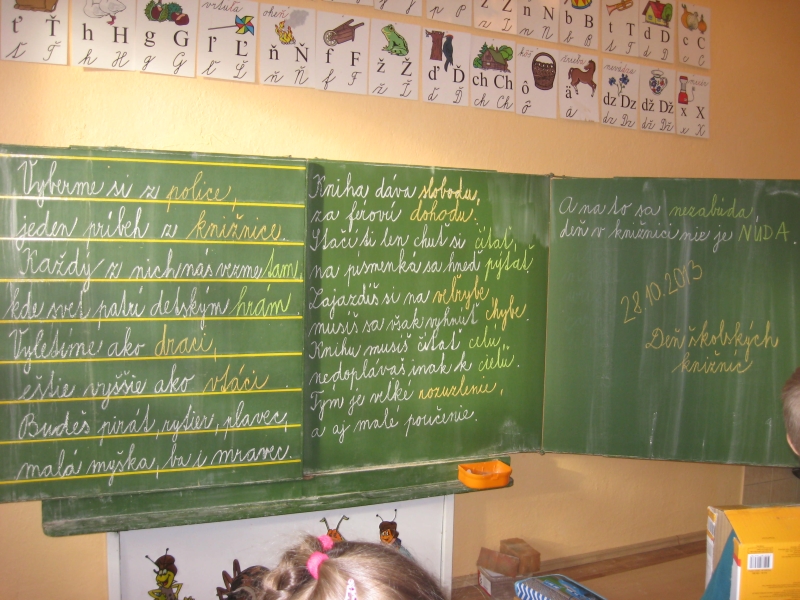 z Z
n N
b B
t T
d D
c C
ť Ť
h H
g G
ľ Ľ
ň Ň
f F
ž Ž
ď Ď
ch Ch
ô
ä
dz Dz
dž Dž
x X
Vyberme si z police,
jeden príbeh z knižnice.
Každý z nich nás vezme tam,
kde svet patrí detským hrám.
Vyletíme ako draci,
ešte vyššie ako vtáci.
Budeš pirát, rytier, plavec,
malá myška, ba i mravec.
Kniha dáva slobodu,
za férovú dohodu.
Stačí ti len chuť si čítať,
na písmenká sa hneď pýtať.
Zajazdíš si na veľrybe
musíš sa však vyhnúť chybe.
Knihu musíš čítať celú,
nedoplávaš inak k cieľu.
Tým je veľké rozuzlenie,
a aj malé poučenie.
A na to sa nezabúda,
deň v knižnici nie je NUDA.
28.10.2013
Deň školských
knižníc